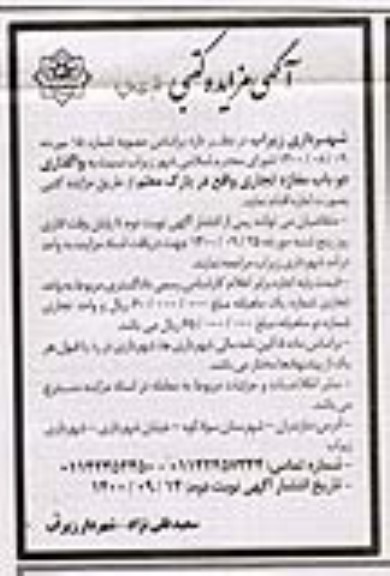 آگهی مزایده کتبی
شهرداری زیراب در نظر دارد براساس مصوبه شماره ۱۵ مورخه
۱۴۰۰/۰۸/۰۹ شورای محترم اسلامی شهر زیراب نسبت به واگذاری
دو باب مغازه تجاری واقع در پارک معلم از طریق مزایده کتبی
بصورت اجاره اقدام نماید.
- متقاضیان می توانند پس از انتشار آگهی نوبت دوم تا پایان وقت اداری
روز پنج شنبه مورخه ۱۴۰۰/۰۹/۲۵ جهت دریافت اسناد مزایده به واحد
درآمد شهرداری زیراب مراجعه نمایند.
- قیمت پایه اجاره برابر اعلام کارشناس رسمی دادگستری مربوط به واحد
تجاری شماره یک ماهیانه مبلغ ریال و واحد تجاری
شماره دو ماهیانه مبلغ ریال می باشد.
- براساس ماده ۵ آئین نامه مالی شهرداری ها، شهرداری در رد یا قبول هر
یک از پیشنهادها مختار می باشد.
- سایر اطلاعات و جزئیات مربوط به معامله در اسناد مزایده مندرج
می باشد.
- آدرس: مازندران - شهرستان سوادکوه - خیابان شهرداری - شهرداری
زیراب
- شماره تماس:
- تاریخ انتشار آگهی نوبت دوم: ۱۴۰۰/۰۹/۱۴
سعید تقی نژاد - شهردار زیراب